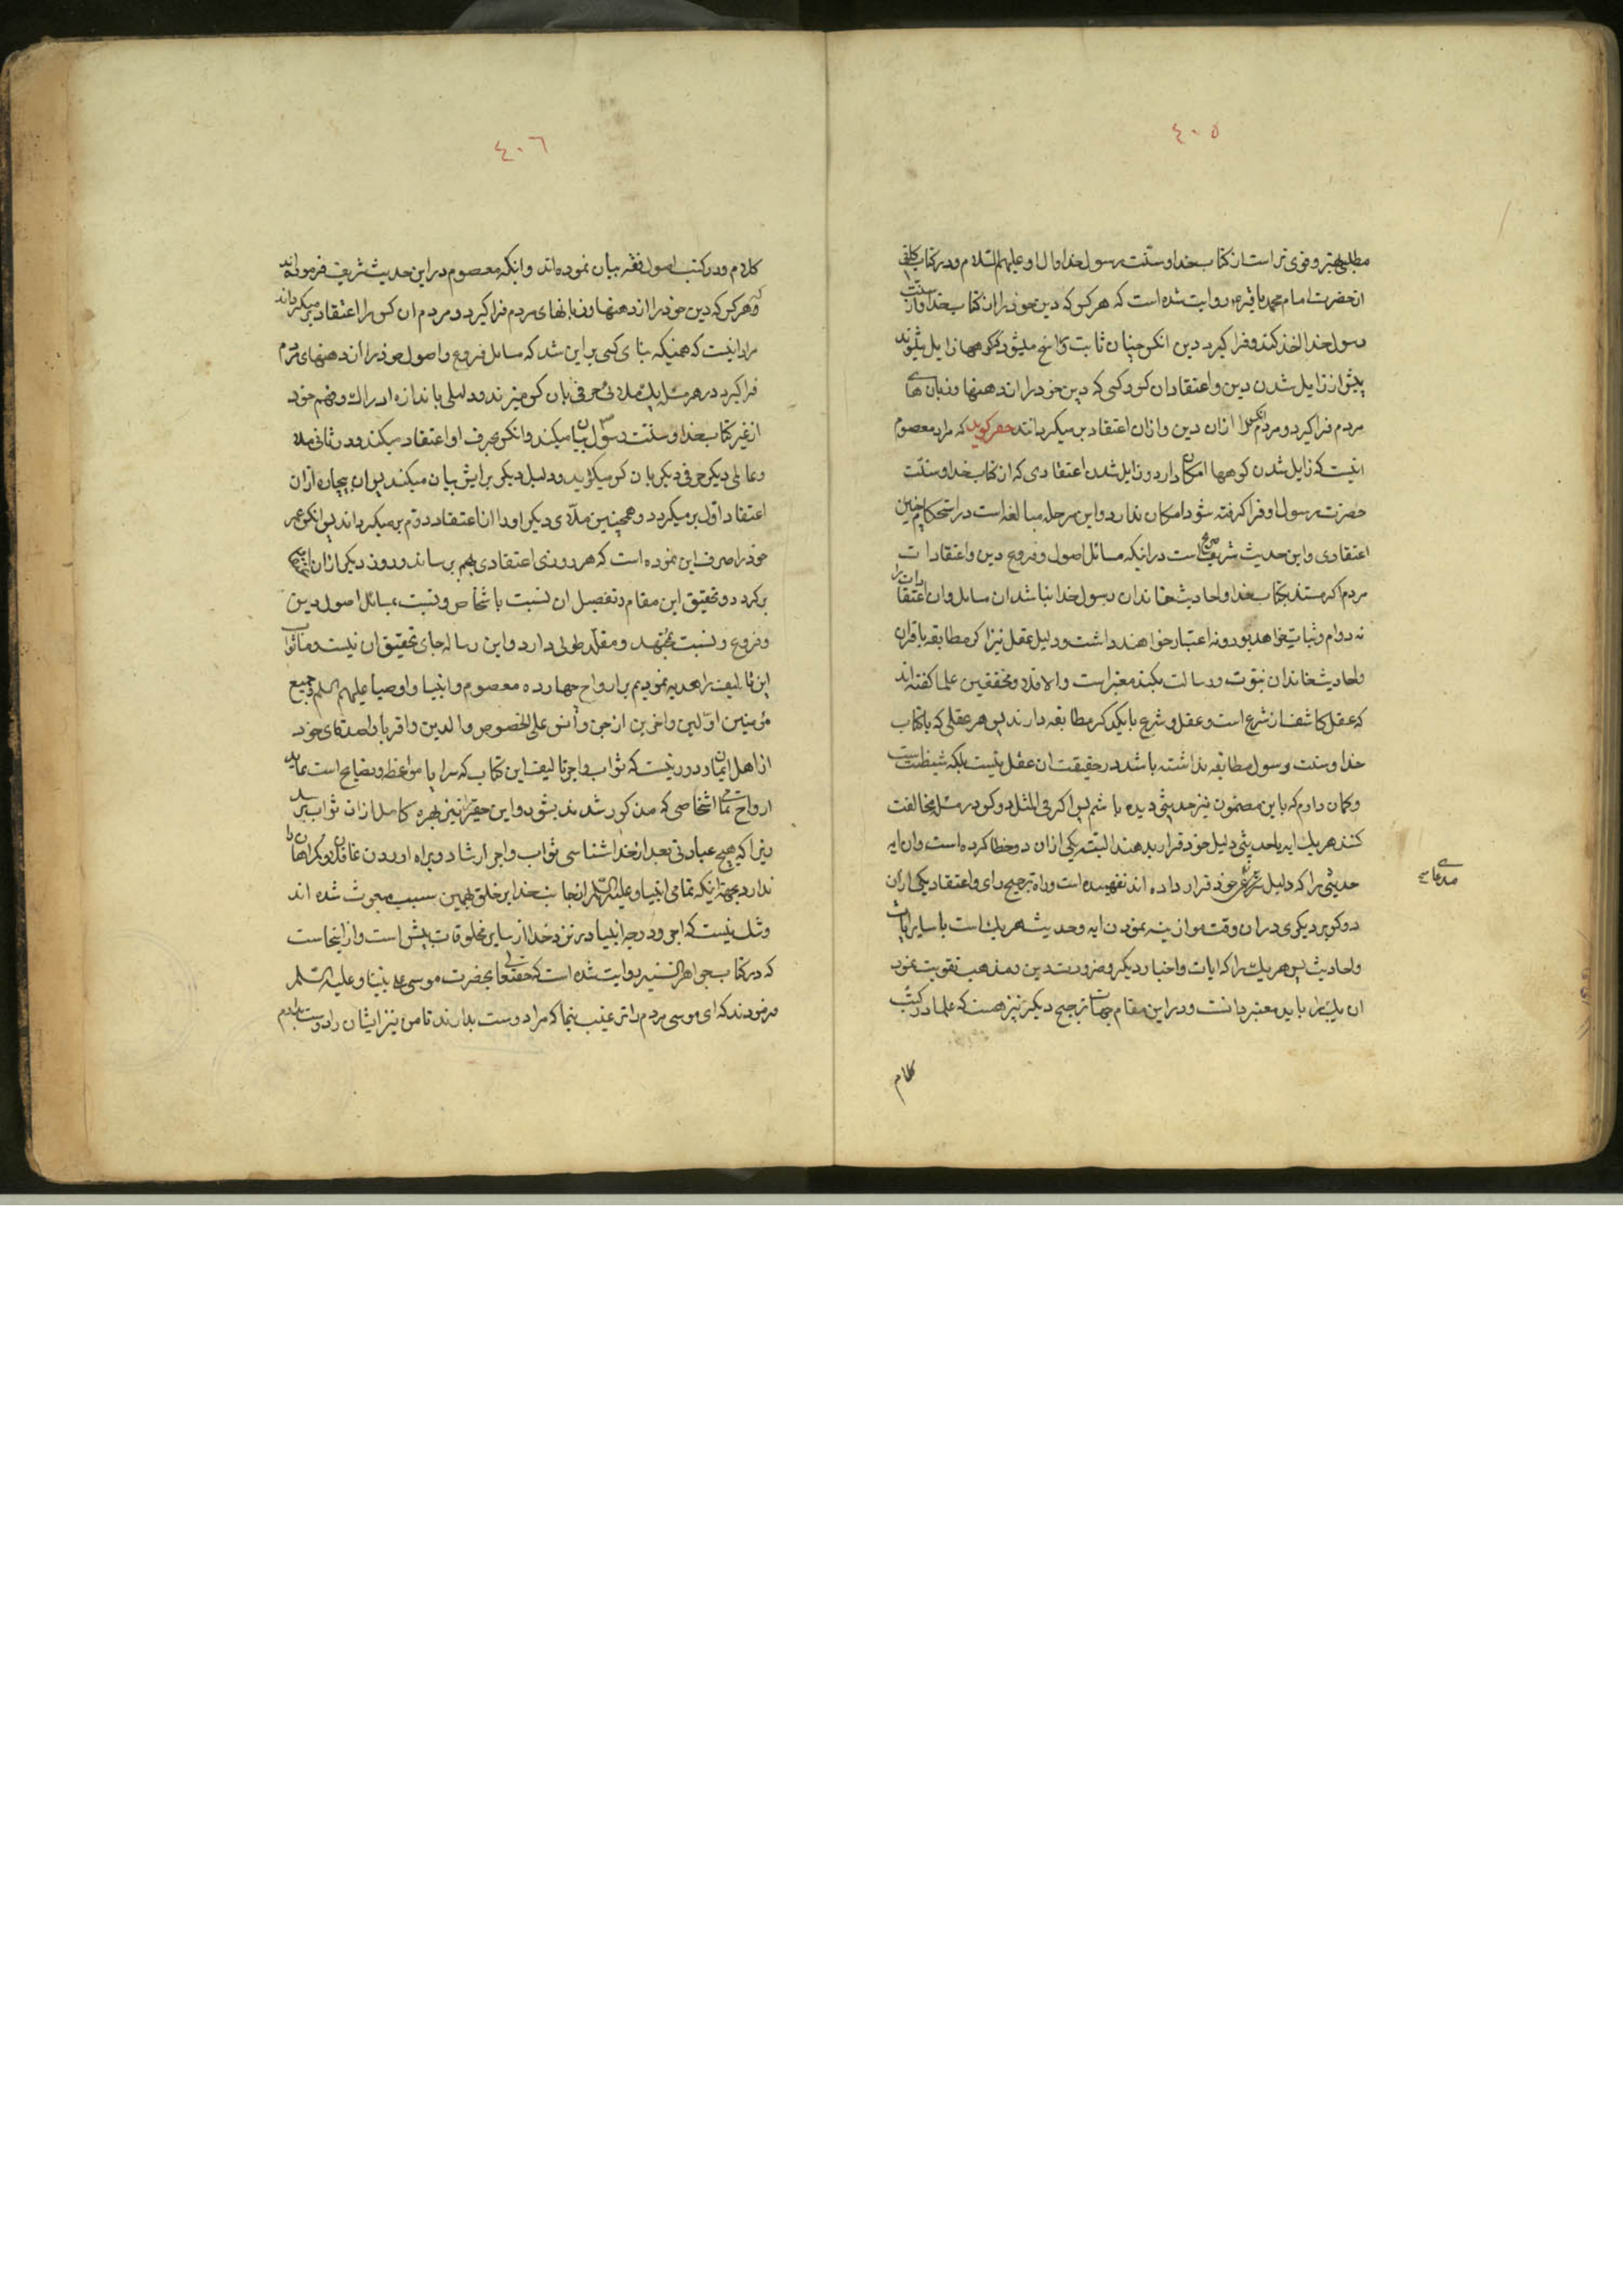 ٤٠٥
مطلبی بهتر و قوی تر است از کتاب خدا و سنت رسول خدا و ال او علیهم السلام و در کتاب کافی
از حضرت امام محمد باقر روایت شده است که هر کس که دین خود را از کتاب خدا و از سنت
رسول خدا اخذ کند و فرا کیرد دین انکس چنان ثابت و راسخ میشود که کوهها زایل بشوند
پیش از زایل شدن دین و اعتقاد ان کس و کسی که دین خود را از دهنها و زبان های
مردم فرا کیرد مردم انکس را ازان دین و ازان اعتقاد بر میکردانند حقیر کوید که مراد معصوم
اینست که زایل شدن کوهها امکان دارد و زایل شدن اعتقادی که از کتاب خدا و سنت
حضرت رسول او فرا کرفته شود امکان ندارد و این مرحله مبالغه است در استحکام چنین
اعتقادی و این حدیث شریف صریح است در انکه مسائل اصول و فروع دین و اعتقادات
مردم اکر مستند بکتاب خدا و احادیث خاندان رسول خدا نباشد ان مسائل و ان اعتقادات را
نه دوام و ثباتی خواهد بود و نه اعتبار خواهند داشت و دلیل عقل نیز اکر مطابقه با قران
و احادیث خاندان نبوت و رسالت بکند معتبر است و الا فلا و محققین علما کفته اند
که عقل کاشف از شرع است و عقل و شرع با یکدیکر مطابقه دارند پس هر عقلی که با کتاب
خدا و سنت رسول مطابقه نداشته باشد در حقیقت ان عقل نیست بلکه شیطنت است
و کمان دارم که باین مضمون نیز حدیثی دیده باشم پس اکر فی المثل دو کس در مسئله مخالفت
کنند هر یک ایه یا حدیثی دلیل خود قرار بدهند البته یکی ازان دو خطا کرده است و ان ایه
حدیثی را که دلیل شرعی خود قرار داده اند نفهمیده است و راه ترجیح رای و اعتقاد یکی ازان
دو کس بر دیکری در ان وقت موازنه نمودن ایه و حدیث هر یک است با سایر ایات
و احادیث پس هر یک را که ایات و اخبار دیکر و ضرورت دین و مذهب تقویت نمود
ان یک را باید معتبر دانست و در این مقام جهات ترجیح دیکر نیز هست که علما در کتب
کلام
٤٠٦
کلام و در کتب اصول فقه بیان نموده اند و انکه معصوم در این حدیث شریف فرموده اند
که هر کس که دین خود را از دهنها و زبانهای مردم فرا کیرد مردم ان کس را از اعتقاد بر میکردانند
مراد اینست که همینکه بنای کسی بر این شد که مسائل فروع و اصول خود را از دهنهای مردم
فرا کیرد در هر مسئله یک ملائی حرفی بان کس میزند و دلیلی باندازه ادراک و فهم خود
از غیر کتاب خدا و سنت رسول بیان میکند و انکس بحرف او اعتقاد میکند و در ثانی ملا
و عالمی دیکر حرفی دیکر بان کس میکوید و دلیل دیکر برایش بیان میکند پس ان بیچاره ازان
اعتقاد اول بر میکردد و همچنین ملای دیکر او را از اعتقاد دوم بر میکرداند پس انکس عمر
خود را صرف این نموده است که هر روزی اعتقادی بهم برساند و روز دیکر ازان اعتقاد
بر کردد و تحقیق این مقام و تفصیل ان نسبت باشخاص و نسبت بمسائل اصول دین
و فروع و نسبت بمجتهد و مقلد طولی دارد و این رساله جای تحقیق ان نیست و ما ثواب
این تالیف را هدیه نمودیم بارواح چهارده معصوم و انبیا و اوصیا علیهم السلم و جمیع
مؤمنین اولین و اخرین از جن و انس علی الخصوص والدین و اقربا و اصدقای خود
از اهل ایمان و دور نیست که ثواب و اجر تالیف این کتاب که سراپا مواعظ و نصایح است عاید
ارواح تمامی اشخاصی که مذکور شدند بشود و این حقیر نیز بهره کامل ازان ثواب ببرد
زیرا که هیچ عبادتی بعد از خدا شناسی ثواب و اجر ارشاد و براه اوردن غافلان و کمراهان را
ندارد بجهة اینکه تمامی انبیا علیهم السلم از جانب خدا بر خلق بهمین سبب مبعوث شده اند
و شک نیست که اجر و درجه انبیا در نزد خدا از سایر مخلوقات بیش است و از اینجاست
که در کتاب جواهر السنیه روایت شده است که حقتعالی بحضرت موسی علی نبینا و علیه السلم
فرمودند که ای موسی مردم را ترغیب بنما که مرا دوست بدارند تا من نیز ایشان را دوست بدارم